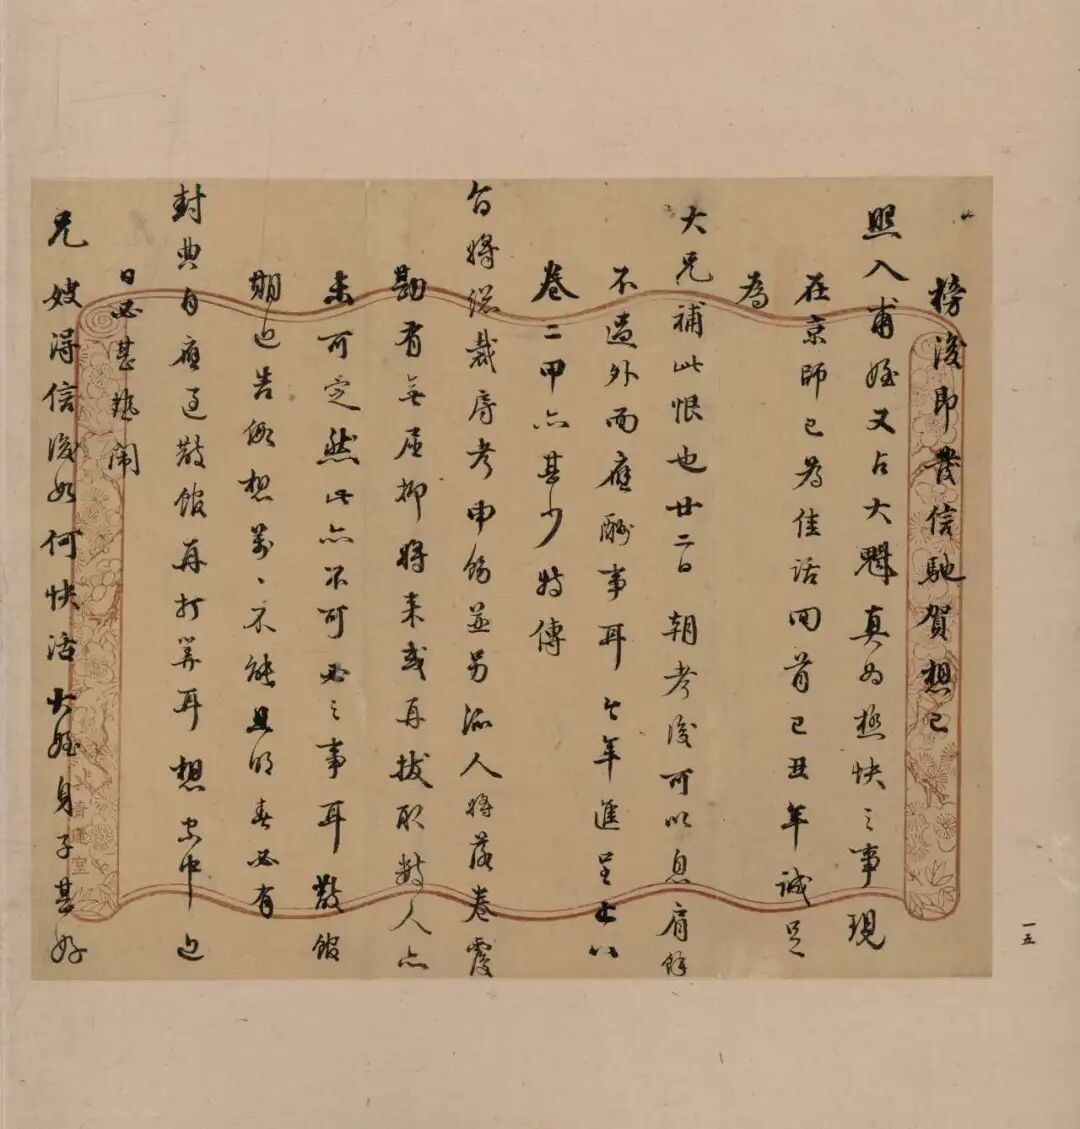 榜後即發信馳賀想已
照入甫姪又占大魁真為極快之事現
在京師已為佳話回首己丑年誠足
為
大兄補此恨也廿二日朝考後可以息肩餘
不過外而應酬事耳今年進呈十八
卷二甲亦甚少特傳
旨將總裁房考申飭並另派人將落卷覆
勘有無屈抑將來或再拔取數人亦
未可定然此亦不可必之事耳散館
期近告假想萬、不能且明春必有
封典自應過散館再打算耳想家中近
日必甚熱鬧
兄嫂得信後如何快活大姪身子甚好
清蓮室
一五